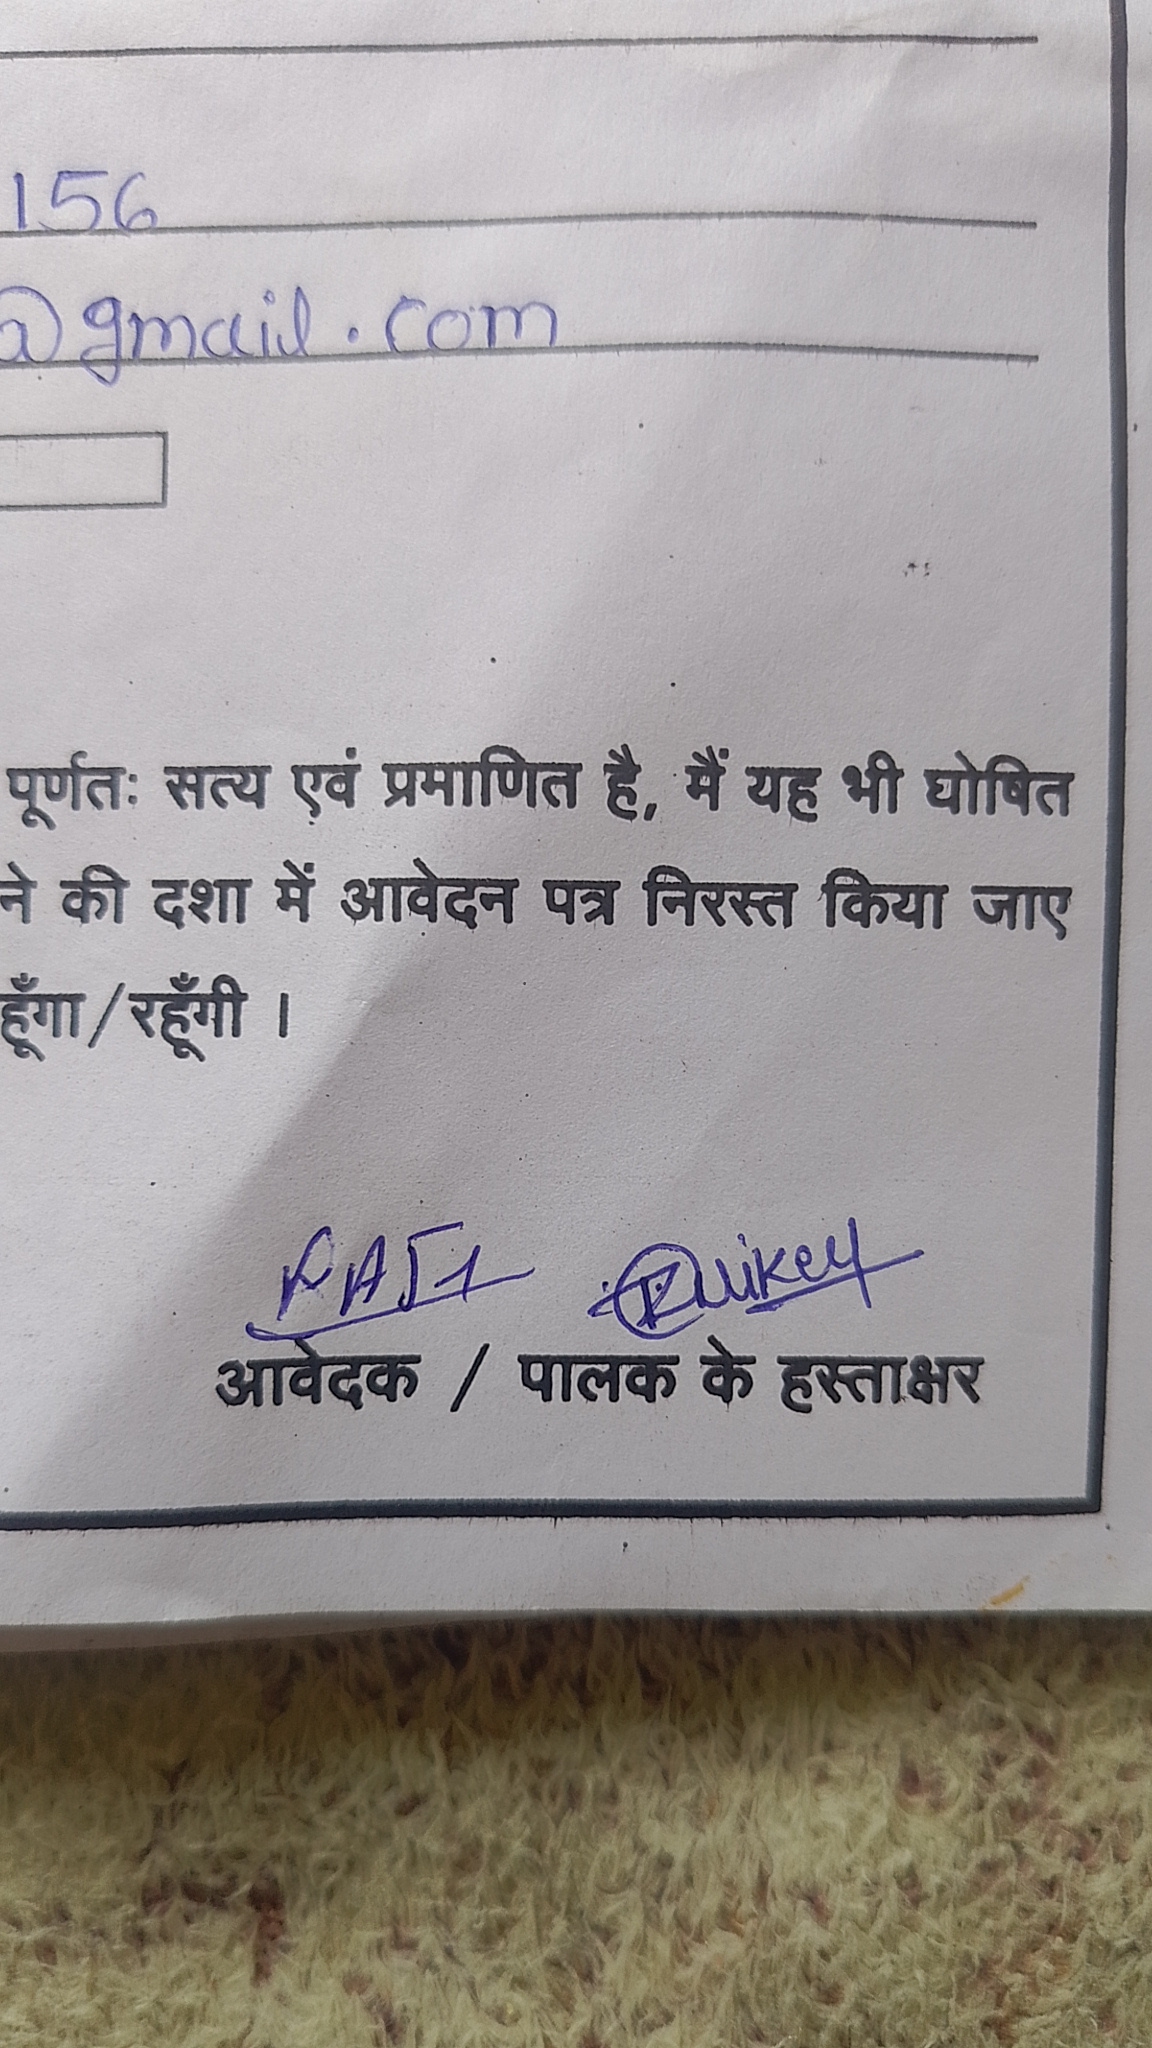 156
@gmail.com
पूर्णतः सत्य एवं प्रमाणित है, मैं यह भी घोषित
ने की दशा में आवेदन पत्र निरस्त किया जाए
हूँगा/रहूँगी ।
आवेदक / पालक के हस्ताक्षर